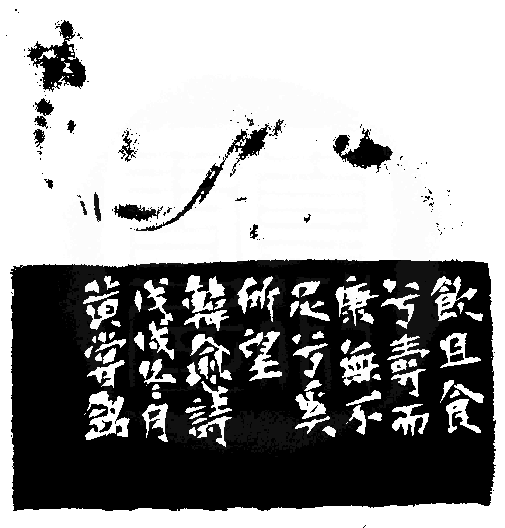 飲且食
兮壽而
康無不
足兮奚
所望
韓愈詩
戊戌冬月
黃嘗銘